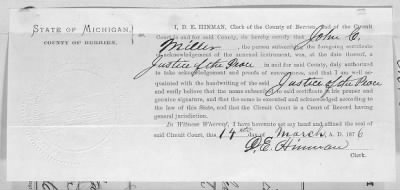 STATE OF MICHIGAN,
COUNTY OF BERRIEN.
I, D. E. HINMAN, Clerk of the County of Berrien, and of the Circuit
Court in and for said County, do hereby certify that John C.
Miller, the person subscribing the foregoing certificate
of acknowledgement of the annexed instrument, was, at the date thereof, a
Justice of the Peace in and for said County, duly authorized
to take acknowledgment and proofs of conveyances, and that I am well ac-
quainted with the handwriting of the said Justice of the Peace
and verily believe that the name subscribed to said certificate is his proper and
genuine signature, and that the same is executed and acknowledged according to
the law of this State, and that the Circuit Court is a Court of Record having
general jurisdiction.
In Witness Whereof, I have hereunto set my hand and affixed the seal of
said Circuit Court, this 14th day of March, A. D. 1876
D. E. Hinman
Clerk.